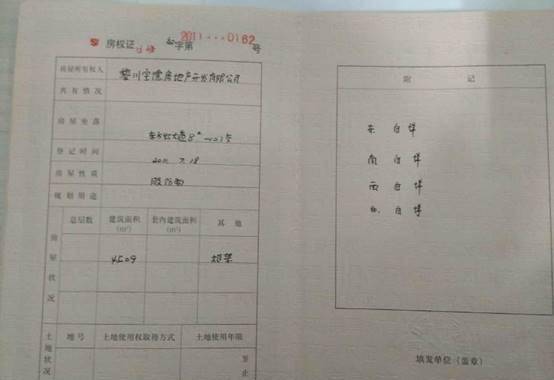 房权证 字第 2011---0162 号
房屋所有权人 房地产开发有限公司
共有情况
房屋坐落
登记时间 2011.7.18
房屋性质
规划用途
房屋状况
总层数 建筑面积(m²) 套内建筑面积(m²) 其他
4509 框架
土地状况
地号 土地使用权取得方式 土地使用年限
至
止
附记
东 自墙
南 自墙
西 自墙
北 自墙
填发单位（盖章）